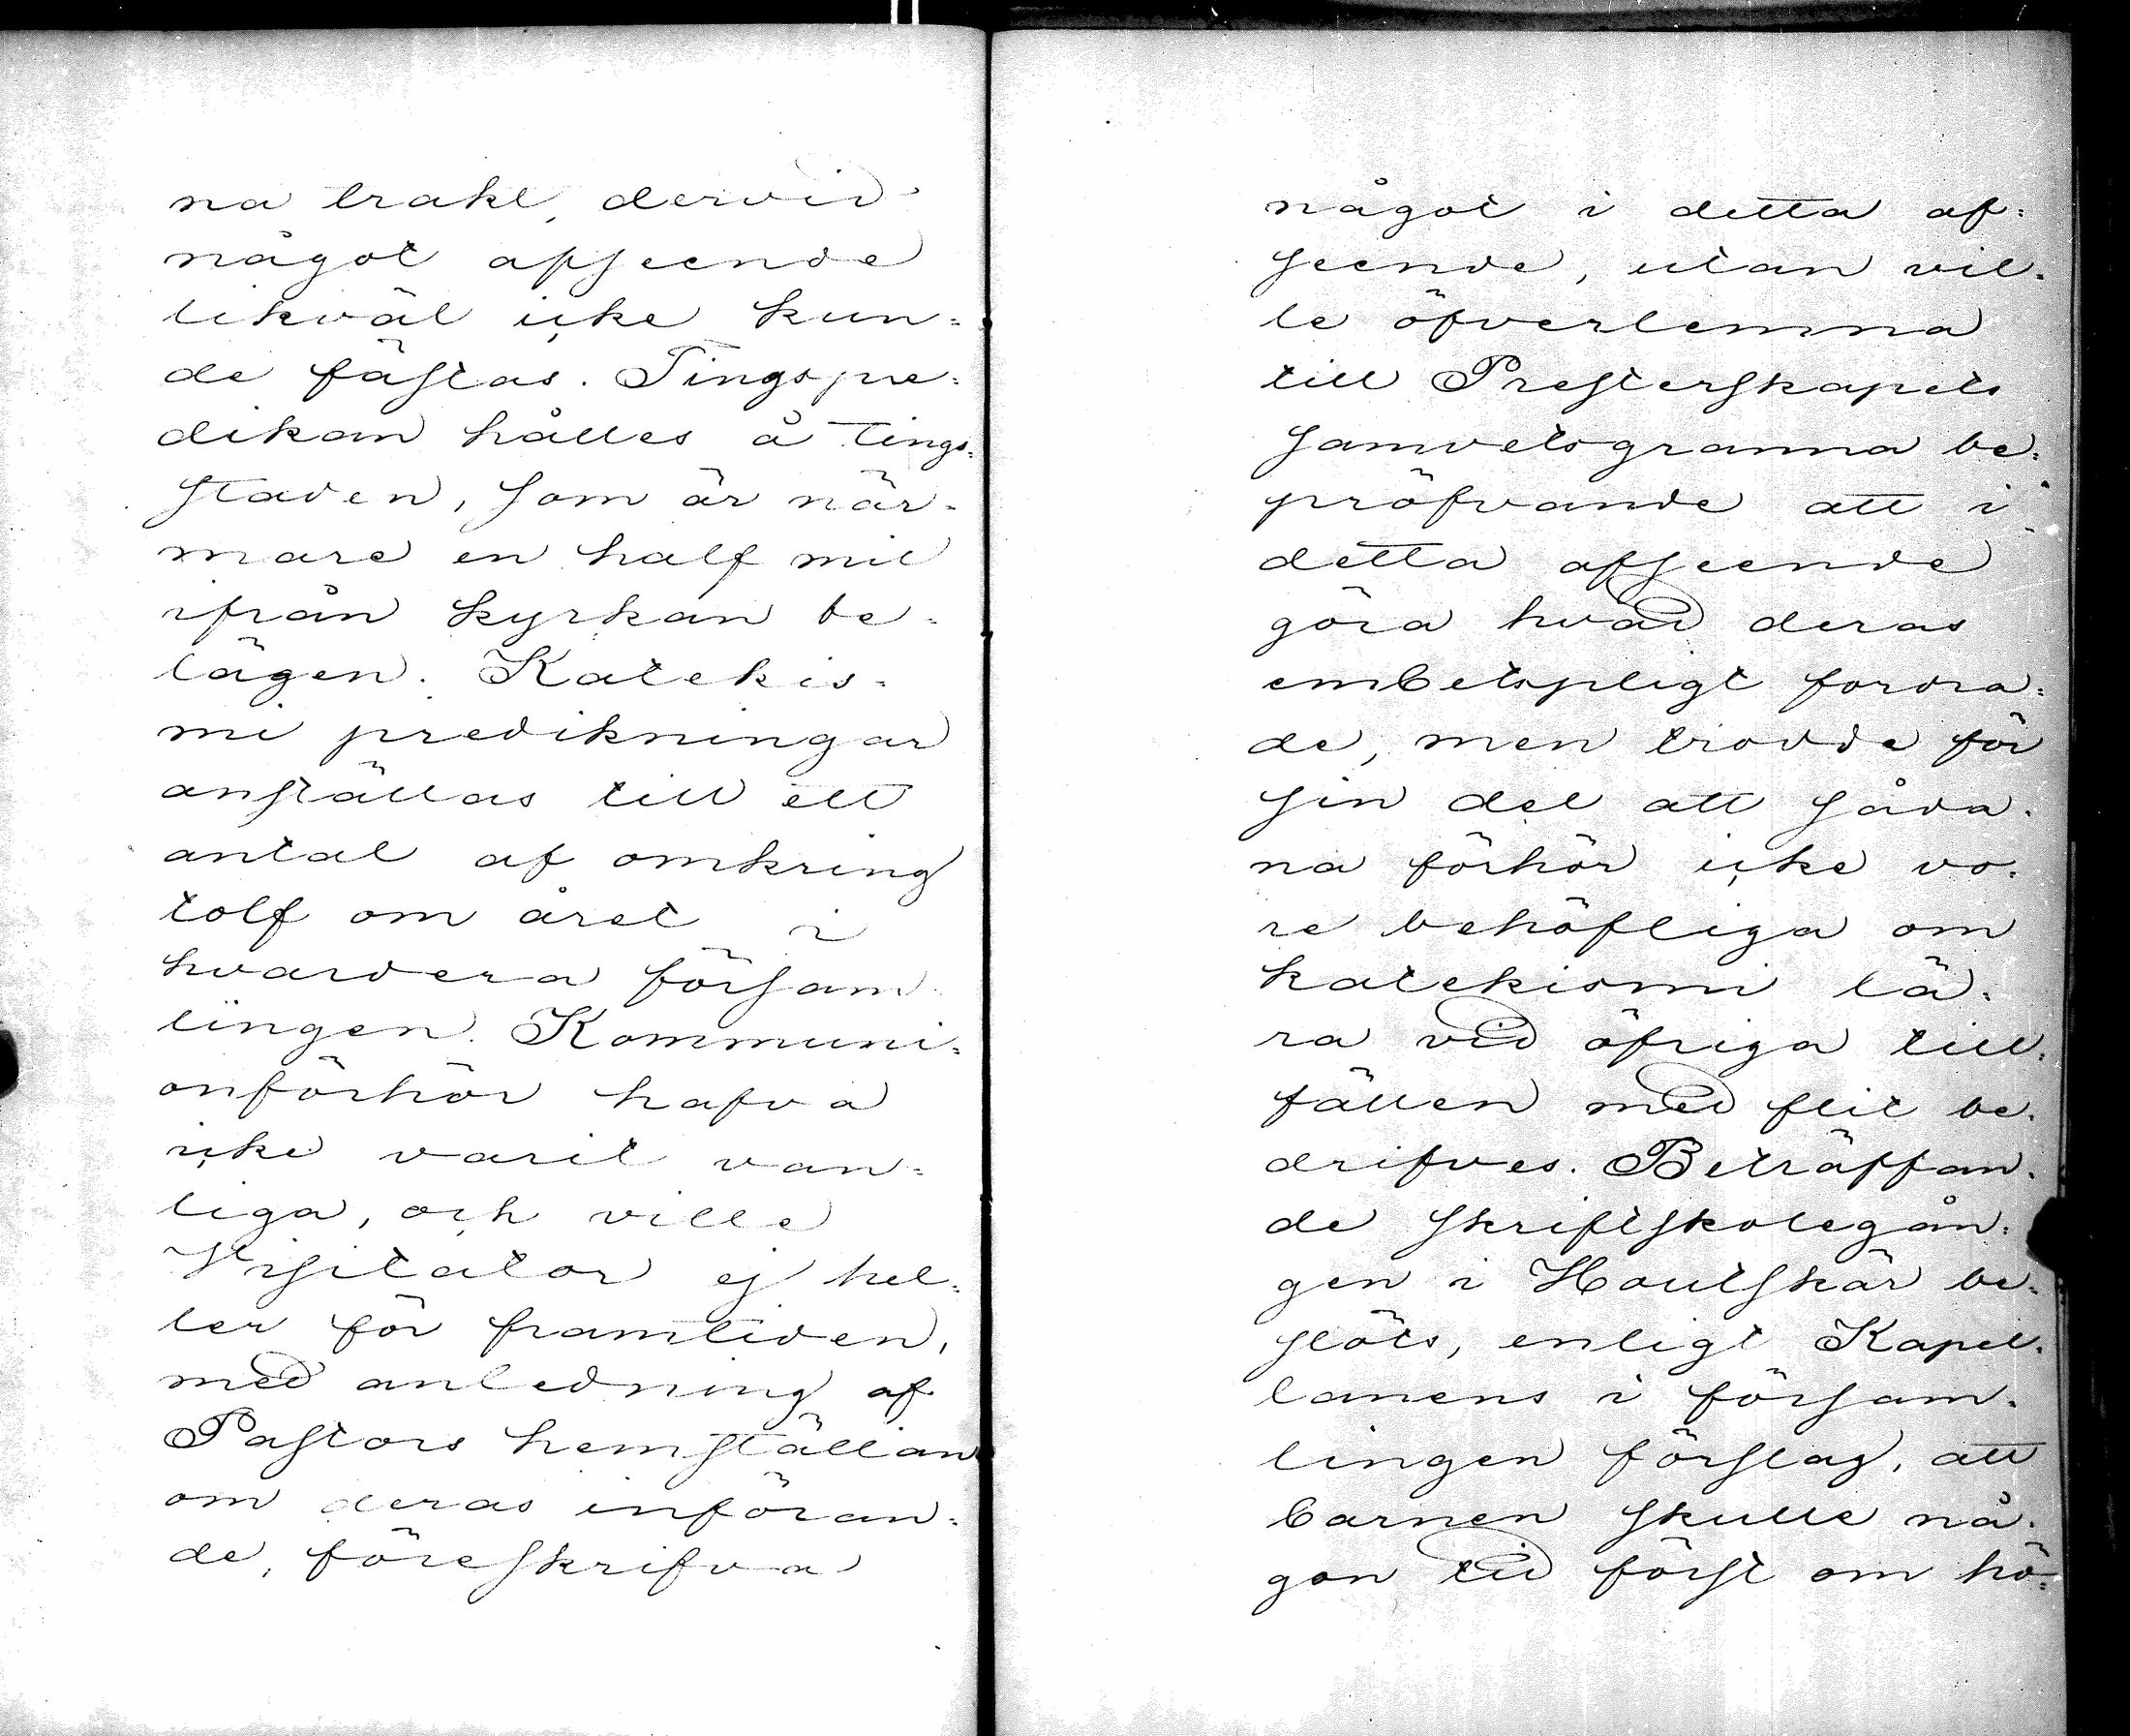 na trakt, dervid
något afseende
likväl icke kun=
de fästas. Tingspre=
dikan hålles å tings=
staden, som är när=
mare en half mil
ifrån kyrkan be=
lägen. Katekis=
mi predikningar
anställas till ett
antal af omkring
tolf om året i
hvardera försam
lingen. Kommuni=
onförhör hafva
icke varit van=
liga, och ville
Visitator ej hel=
ler för framtiden,
med anledning af
Pastors hemställian
om deras införan=
de, föreskrifva
något i detta af=
seende, utan vil=
le öfverlemna
till Presterskapets
samvetsgranna be=
pröfvande att i
detta afseende
göra hvad deras
embetspligt fordra=
de, men trodde för
sin del att såda=
na förhör icke vo=
re behöfliga om
katekismi lä=
ra vid öfriga till=
fällen med flit be=
drifves. Beträffan=
de skriftskolegån=
gen i Houtskär be=
slöts, enligt Kapel=
lanens i försam=
lingen förslag, att
barnen skulle nå=
gon tid först om hö=